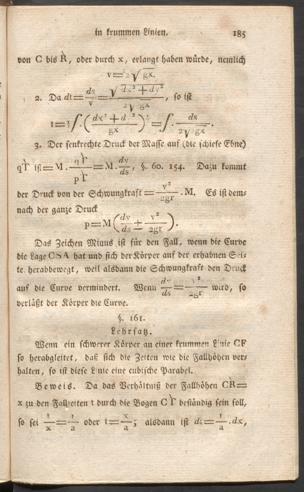 in krummen Linien. 185
von C bis R, oder durch x, erlangt haben würde, nemlich
v=2√gx.
2. Da dt= ds/v = √dx²+dy² / 2√gx, so ist
t=½∫.(dx²+dy² / gx)^½=∫ ds / 2√gx.
3. Der senkrechte Druck der Masse auf (die schiefe Ebne)
qϓ ist=M. qϓ/pϓ =M. dy/ds, §. 60. 154. Dazu kommt
der Druck von der Schwungkraft= v²/2gr .M. Es ist dem-
nach der ganze Druck
p=M(dy/ds ± v²/2gr).
Das Zeichen Minus ist für den Fall, wenn die Curve
die Lage CSA hat und sich der Körper auf der erhabnen Sei-
te herabbewegt, weil alsdann die Schwungkraft den Druck
auf die Curve vermindert. Wenn dy/ds = v²/2gr wird, so
verläßt der Körper die Curve.
§. 161.
Lehrsatz.
Wenn ein schwerer Körper an einer krummen Linie CF
so herabgleitet, daß sich die Zeiten wie die Fallhöhen ver-
halten, so ist diese Linie eine cubische Parabel.
Beweis. Da das Verhältniß der Fallhöhen CR=
x zu den Fallzeiten t durch die Bogen Cϓ beständig seyn soll,
so sei t/x = 1/a oder t= x/a; alsdann ist dt= 1/a .dx,